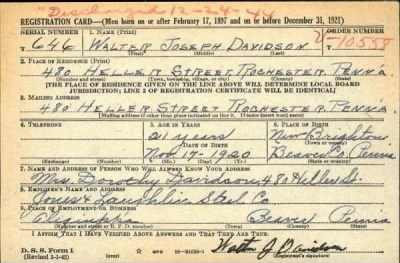 REGISTRATION CARD—(Men born on or after February 17, 1897 and on or before December 31, 1921)
SERIAL NUMBER 1. NAME (Print) ORDER NUMBER
T 646 WALTER JOSEPH DAVIDSON 10558
(First) (Middle) (Last)
2. PLACE OF RESIDENCE (Print)
480 HELLER STREET, ROCHESTER PENN'A
(Number and street) (Town, township, village, or city) (County) (State)
[THE PLACE OF RESIDENCE GIVEN ON THE LINE ABOVE WILL DETERMINE LOCAL BOARD
JURISDICTION; LINE 2 OF REGISTRATION CERTIFICATE WILL BE IDENTICAL]
3. MAILING ADDRESS
480 HELLER STREET, ROCHESTER PENN'A
[Mailing address if other than place indicated on line 2. If same insert word same]
4. TELEPHONE 5. AGE IN YEARS 6. PLACE OF BIRTH
21 years New Brighton
DATE OF BIRTH (Town or county)
Nov 17-1920 Beaver Co. Penna
(Exchange) (Number) (Mo.) (Day) (Yr.) (State or country)
7. NAME AND ADDRESS OF PERSON WHO WILL ALWAYS KNOW YOUR ADDRESS
Mrs. Dorothy Davidson, 480 Heller St.
8. EMPLOYER'S NAME AND ADDRESS
Jones & Laughlin Steel Co
9. PLACE OF EMPLOYMENT OR BUSINESS
Aliquippa Beaver Penna
(Number and street or R. F. D. number) (Town) (County) (State)
I AFFIRM THAT I HAVE VERIFIED ABOVE ANSWERS AND THAT THEY ARE TRUE.
D. S. S. Form 1
(Revised 1-1-42) (over) 16—21630-1 Walter J Davidson
(Registrant's signature)